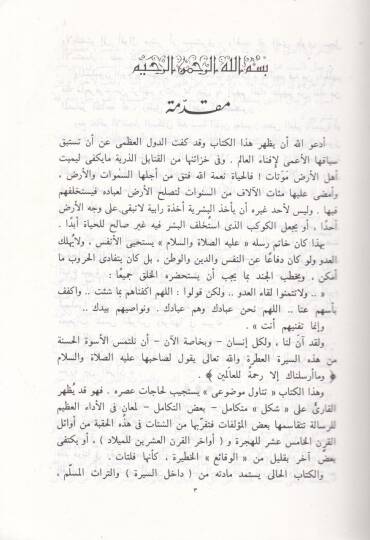 بسم الله الرحمن الرحيم
مقدمة
أدعو الله أن يظهر هذا الكتاب وقد كفت الدول العظمى عن أن تستبق
سباقها الأعمى لإفناء العالم . وفى خزائنها من القنابل الذرية مايكفى ليميت
أهل الأرض موتات ! فالحياة نعمة الله فتق من أجلها السموات والأرض ،
وأمضى عليها مئات الآلاف من السنوات لتصلح الأرض لعباده فيستخلفهم
فيها . وليس لأحد غيره أن يأخذ البشرية أخذة رابية لاتبقى على وجه الأرض
أحدًا ، أو يجعل الكوكب الذى استُخلف البشر فيه غير صالح للحياة أبدًا .
بهذا كان خاتم رسله « عليه الصلاة والسلام » يستحيى الأنفس ، ولايُهلك
العدو ولو كان دفاعًا عن النفس والدين والوطن ، بل كان يتفادى الحروب ما
أمكن . ويخطب الجند بما يجب أن يستحضره الخلق جميعًا :
« .. ولاتتمنوا لقاء العدو .. ولكن قولوا : اللهم اكفناهم بما شئت .. واكفف
بأسهم عنا .. اللهم نحن عبادك وهم عبادك . ونواصيهم بيدك ..
وإنما تفنيهم أنت » .
ولقد آن لنا ، ولكل إنسان – وبخاصة الآن – أن نلتمس الأسوة الحسنة
من هذه السيرة العطرة والله تعالى يقول لصاحبها عليه الصلاة والسلام
﴿ وماأرسلناك إلا رحمةً للعالمين ﴾ .
وهذا الكتاب « تناول موضوعى » يستجيب لحاجات عصره . فهو قد يُظهر
القارئ على « شكل » متكامل – بعض التكامل – لمعان فى الأداء العظيم
للرسالة تتقاسمها بعض المؤلفات فتقرّبها من الشتات فى هذه الحقبة من أوائل
القرن الخامس عشر للهجرة و ( أواخر القرن العشرين للميلاد ) ، أو يكتفى
بعضٌ آخر بقليل من « الوقائع » الخطيرة ، كأنها فلتات .
والكتاب الحالى يستمد مادته من ( داخل السيرة ) والتراث المسلّم ،
٣